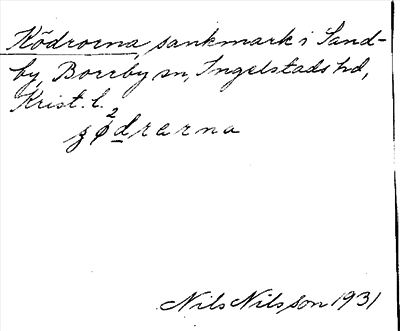 Ködrorna, sankmark i Sand-
by, Borrby sn, Ingelstads hd,
Krist. l.
²
ʒødrarna
Nils Nilsson 1931